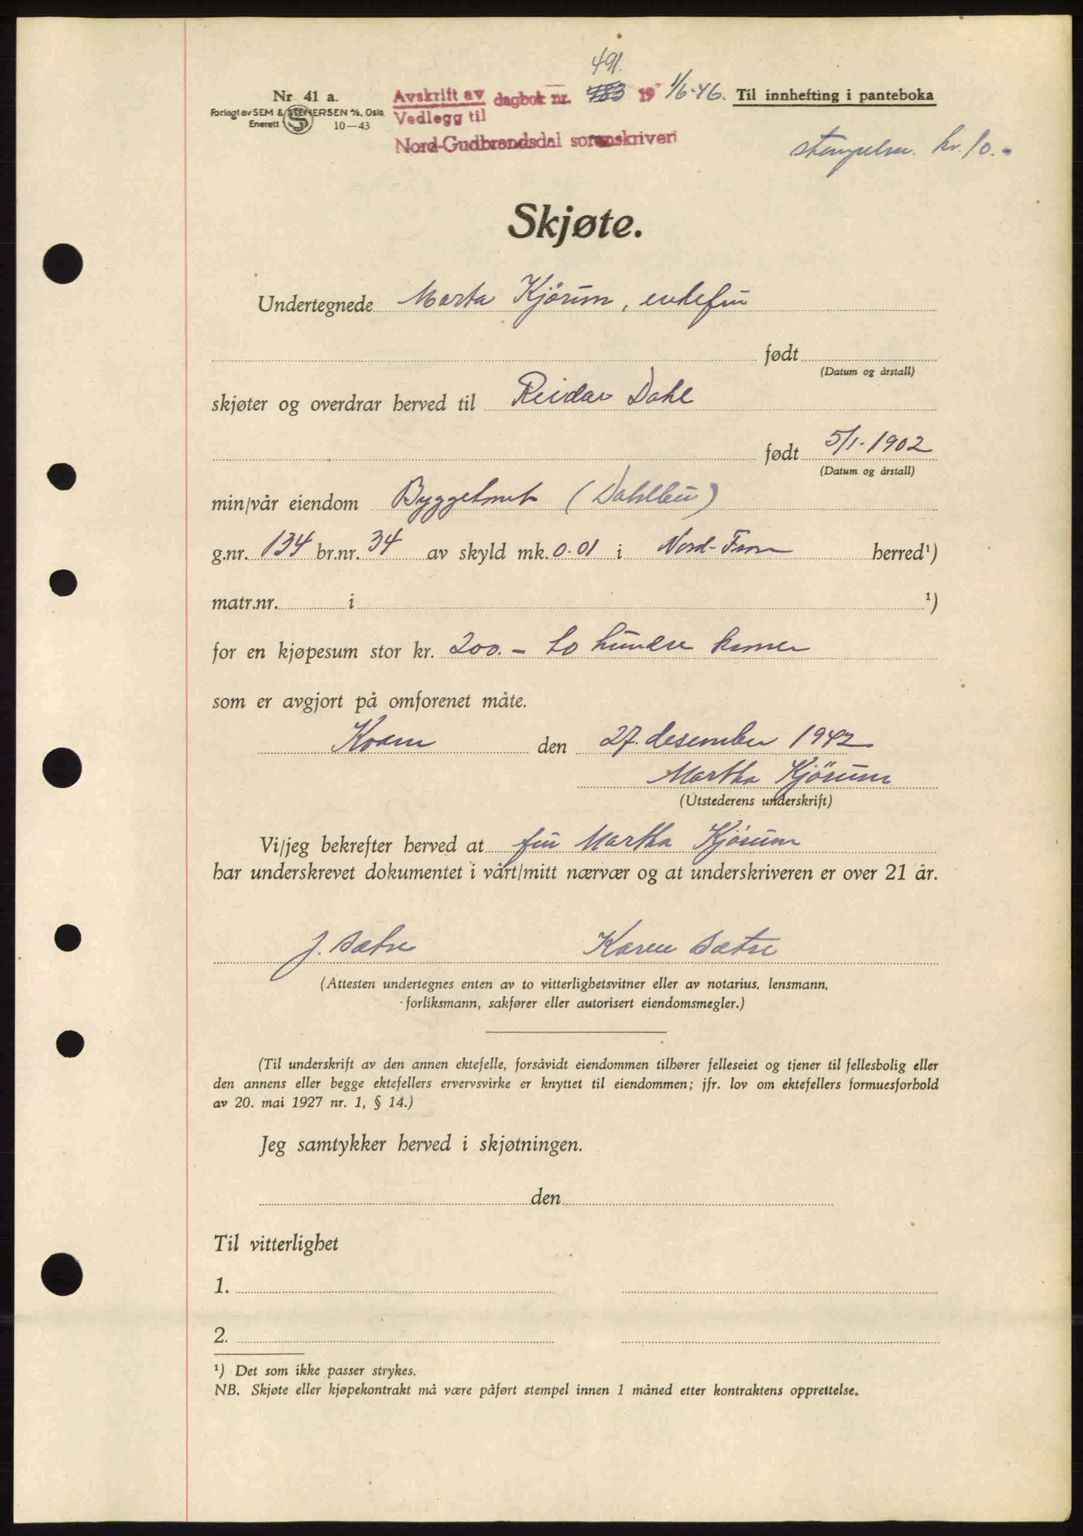 491.
Nr. 41 a.
Forlagt av SEM & STENERSEN A/S, Oslo
Enerett 10—43
Avskrift av dagbok nr. 783 19 1/6-46. Til innhefting i panteboka
Vedlegg til
Nord-Gudbrandsdal sorenskriveri
stempelm. kr. 10.-
Skjøte.
Undertegnede Marta Kjörum, enkefru
født
(Datum og årstall)
skjøter og overdrar herved til Reidar Dahl
født 5/1-1902
(Datum og årstall)
min/vår eiendom Byggetomt (Dahlbu)
g.nr. 134 br.nr. 34 av skyld mk. 0.01 i Nord-Fron herred¹)
matr.nr. i ¹)
for en kjøpesum stor kr. 200.- to hundre kroner
som er avgjort på omforenet måte.
Kvam den 27. desember 1942
Martha Kjörum
(Utstederens underskrift)
Vi/jeg bekrefter herved at fru Martha Kjörum
har underskrevet dokumentet i vårt/mitt nærvær og at underskriveren er over 21 år.
J. Sætre Karen Sætre
(Attesten undertegnes enten av to vitterlighetsvitner eller av notarius, lensmann,
forliksmann, sakfører eller autorisert eiendomsmegler.)
(Til underskrift av den annen ektefelle, forsåvidt eiendommen tilhører felleseiet og tjener til fellesbolig eller
den annens eller begge ektefellers ervervsvirke er knyttet til eiendommen; jfr. lov om ektefellers formuesforhold
av 20. mai 1927 nr. 1, § 14.)
Jeg samtykker herved i skjøtningen.
den
Til vitterlighet
1.
2.
¹) Det som ikke passer strykes.
NB. Skjøte eller kjøpekontrakt må være påført stempel innen 1 måned etter kontraktens opprettelse.